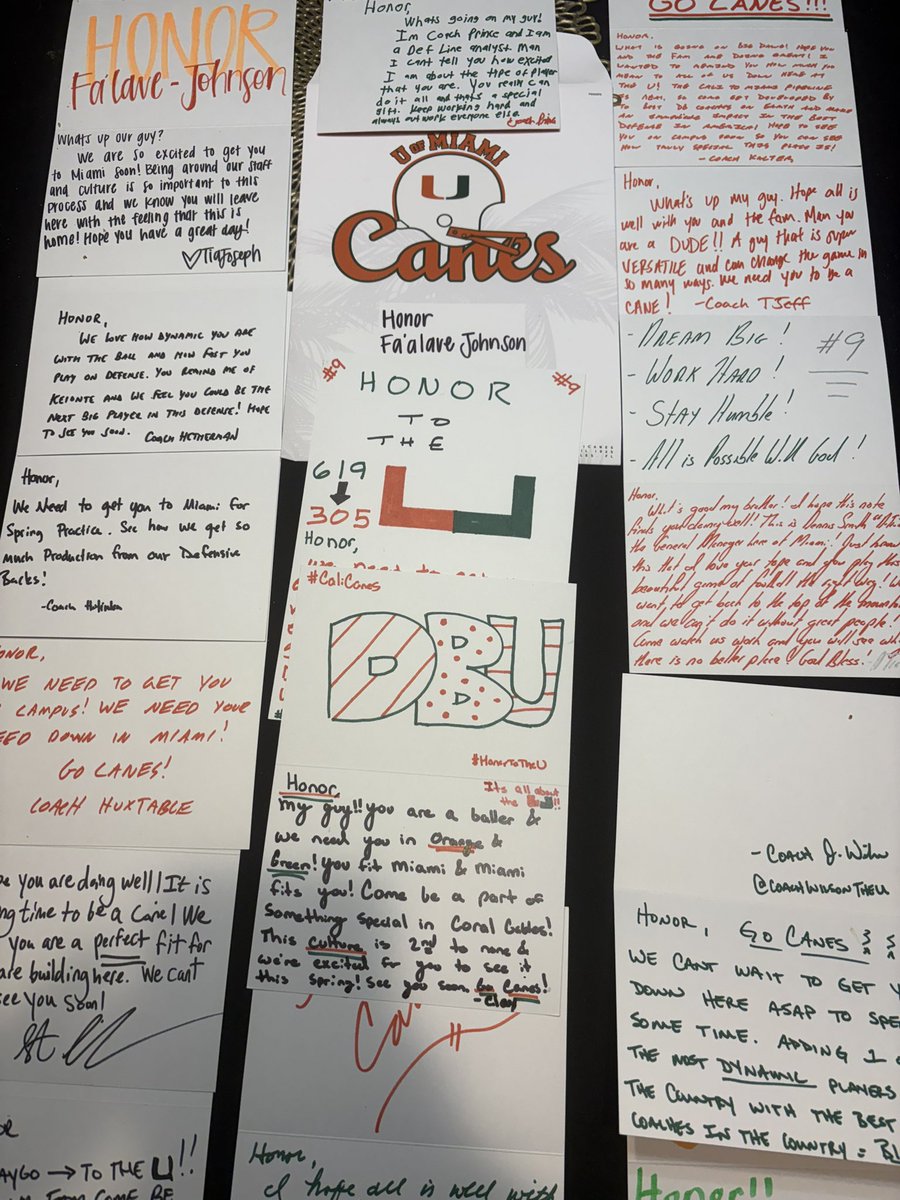 HONOR
Fa'alave-Johnson
Whats up our guy?
We are so excited to get you
to Miami soon! Being around our staff
and culture is so important to this
process and we know you will leave
here with the feeling that this is
home! Hope you have a great day!
Tia Joseph
HONOR,
WE LOVE HOW DYNAMIC YOU ARE
WITH THE BALL AND HOW FAST YOU
PLAY ON DEFENSE. YOU REMIND ME OF
KEIONTE AND WE FEEL YOU COULD BE THE
NEXT BIG PLAYER IN THIS DEFENSE! HOPE
TO SEE YOU SOON. COACH HETHERMAN
Honor,
We Need to get you to Miami for
Spring Practice. See how we get so
Much Production from our Defensive
Backs!
-Coach
ONOR,
WE NEED TO GET YOU
CAMPUS! WE NEED YOUR
EED DOWN IN MIAMI!
GO CANES!
COACH HUXTABLE
e you are doing well! It is
ng time to be a Cane! We
you are a perfect fit for
are building here. We cant
see you soon!
AYGO → TO THE U!!
COME BE
Honor,
Whats going on my guy!
Im Coach Prince and I am
a Def Line analyst. Man
I cant tell you how excited
I am about the type of player
that you are. You really can
do it all and thats a special
gift. Keep working hard and
always outwork everyone else.
Coach Prince
U OF MIAMI
U
Canes
Honor
Fa'alave Johnson
#9
#9
HONOR
TO
THE
619
305
U
Honor,
#CaliCanes
DBU
#HonorToTheU
Honor,
It's all about
the U!!
my guy!! you are a baller &
we need you in Orange &
Green! you fit Miami & Miami
fits you! Come be a part of
Something Special in Coral Gables!
This culture is 2nd to none &
we're excited for you to see it
this spring! See you soon, Go Canes!
Honor,
I hope all is well with
GO CANES!!!
HONOR,
WHAT IS GOING ON BIG DAWG! HOPE YOU
AND THE FAM ARE DOING GREAT! I
WANTED TO REMIND YOU HOW MUCH YOU
MEAN TO ALL OF US DOWN HERE AT
THE U! THE CALI TO MIAMI PIPELINE
IS REAL. COME GET DEVELOPED BY
BEST DB COACHES ON EARTH AND MAKE
AN IMMEDIATE IMPACT IN THE BEST
DEFENSE IN AMERICA! HOPE TO SEE
YOU ON CAMPUS SOON SO YOU CAN SEE
HOW TRULY SPECIAL THIS PLACE IS!
-COACH KALTER
Honor,
What's up my guy. Hope all is
well with you and the fam. Man you
are a DUDE!! A guy that is super
VERSATILE and can change the game in
so many ways. We need you to be a
CANE! -Coach TJeff
- DREAM BIG!
#9
- WORK HARD!
- STAY Humble!
- All is Possible With God!
Honor,
What's good my brother! I hope this note
finds you doing well! This is Dennis Smith
the General Manager here at Miami! Just know
this that I love your tape and you play this
beautiful game of football the right way! We
want to get back to the top of the mountain
and we can't do it without great people!
Come watch us work and you will see why
there is no better place! God Bless!
-COACH J. Wilson
@COACHWILSONTHEU
HONOR, GO CANES
WE CANT WAIT TO GET Y
DOWN HERE ASAP TO SPE
SOME TIME. ADDING 1 O
THE MOST DYNAMIC PLAYERS
THE COUNTRY WITH THE BEST
COACHES IN THE COUNTRY =
Honor!!